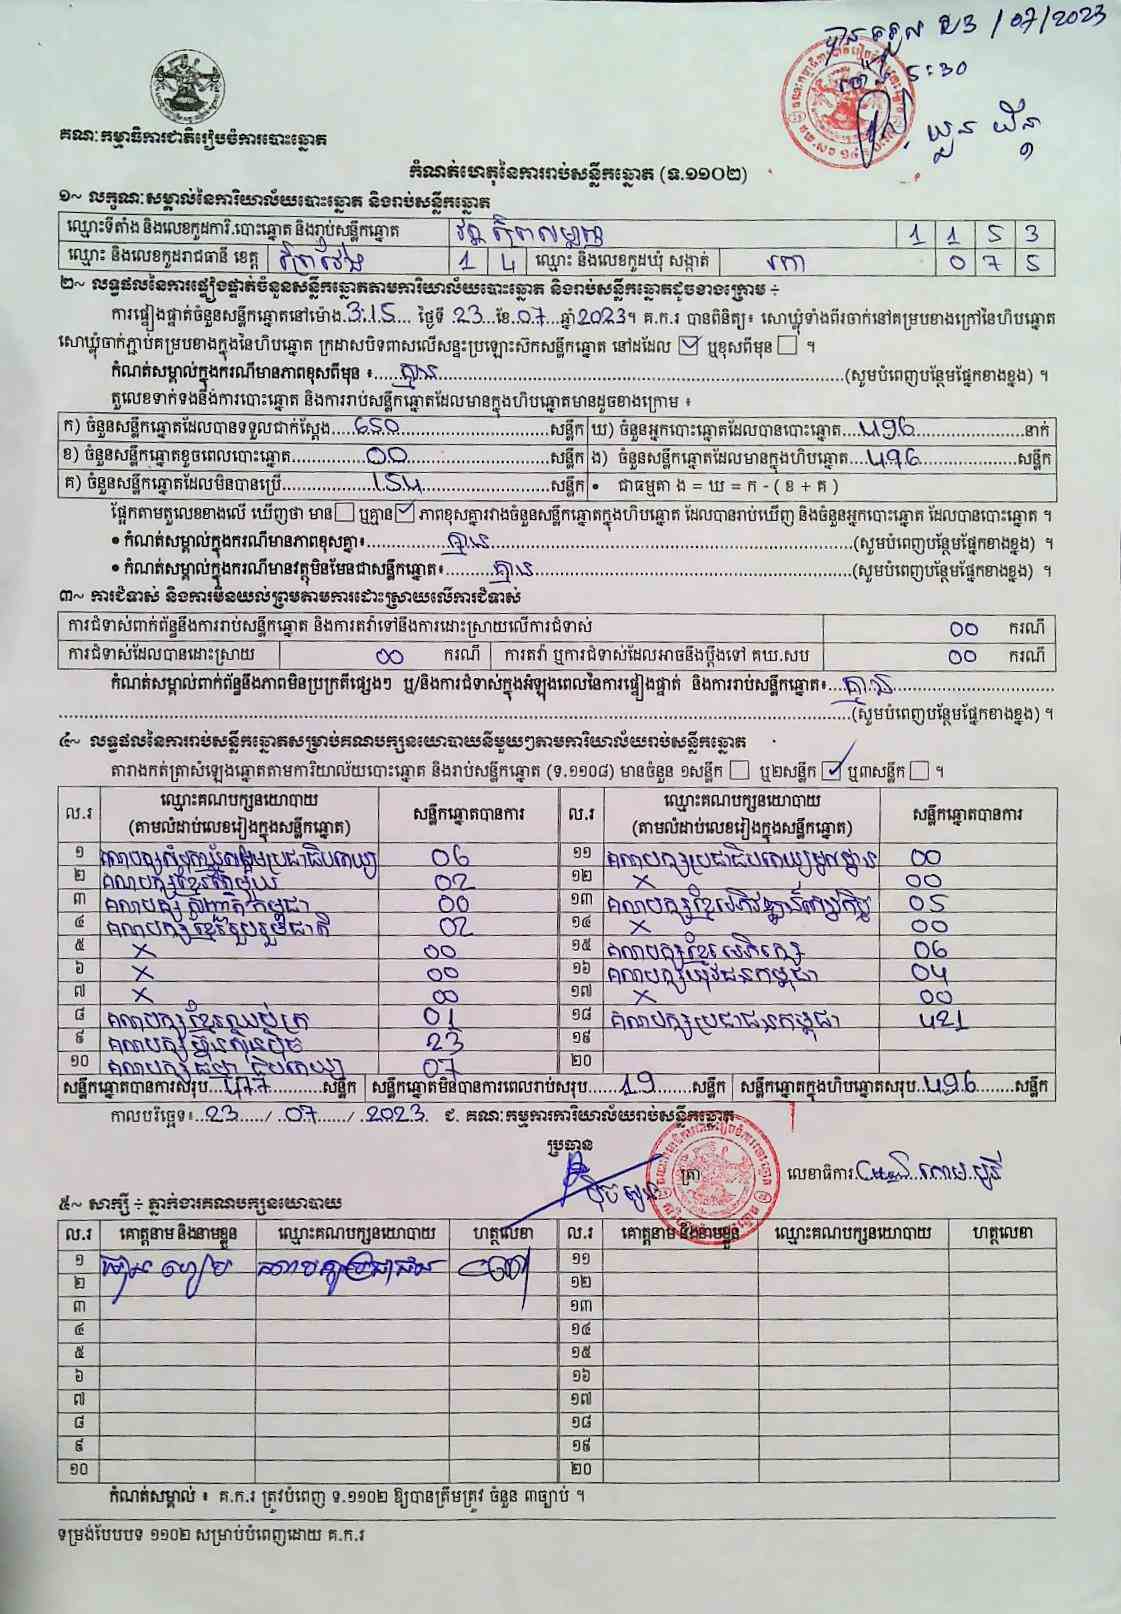 បានទទួល 23/07/2023
ម៉ោង 5:30
គណៈកម្មាធិការជាតិរៀបចំការបោះឆ្នោត
កំណត់ហេតុនៃការរាប់សន្លឹកឆ្នោត (ទ.១១០២)
១~ លក្ខណៈសម្គាល់នៃការិយាល័យបោះឆ្នោត និងរាប់សន្លឹកឆ្នោត
ឈ្មោះទីតាំង និងលេខកូដការិ.បោះឆ្នោត និងរាប់សន្លឹកឆ្នោត វត្ត 1 1 5 3
ឈ្មោះ និងលេខកូដរាជធានី ខេត្ត ព្រៃវែង 1 4 ឈ្មោះ និងលេខកូដឃុំ សង្កាត់ រកា 0 7 5
២~ លទ្ធផលនៃការផ្ទៀងផ្ទាត់ចំនួនសន្លឹកឆ្នោតតាមការិយាល័យបោះឆ្នោត និងរាប់សន្លឹកឆ្នោតដូចខាងក្រោម ÷
ការផ្ទៀងផ្ទាត់ចំនួនសន្លឹកឆ្នោតនៅម៉ោង.3:15... ថ្ងៃទី .23...ខែ.07...ឆ្នាំ2023។ គ.ក.រ បានពិនិត្យ៖ សោឃ្លុំទាំងពីរចាក់នៅគម្របខាងក្រៅនៃហិបឆ្នោត
សោឃ្លុំចាក់ភ្ជាប់គម្របខាងក្នុងនៃហិបឆ្នោត ក្រដាសបិទពាសលើសន្ទះប្រឡោះស៊កសន្លឹកឆ្នោត នៅដដែល ☑ ឬខុសពីមុន ☐ ។
កំណត់សម្គាល់ក្នុងករណីមានភាពខុសពីមុន ៖....គ្មាន....(សូមបំពេញបន្ថែមផ្នែកខាងខ្នង) ។
តួលេខទាក់ទងនឹងការបោះឆ្នោត និងការរាប់សន្លឹកឆ្នោតដែលមានក្នុងហិបឆ្នោតមានដូចខាងក្រោម ៖
ក) ចំនួនសន្លឹកឆ្នោតដែលបានទទួលជាក់ស្តែង....650....សន្លឹក ឃ) ចំនួនអ្នកបោះឆ្នោតដែលបានបោះឆ្នោត...496....នាក់
ខ) ចំនួនសន្លឹកឆ្នោតខូចពេលបោះឆ្នោត....00....សន្លឹក ង) ចំនួនសន្លឹកឆ្នោតដែលមានក្នុងហិបឆ្នោត....496....សន្លឹក
គ) ចំនួនសន្លឹកឆ្នោតដែលមិនបានប្រើ....154....សន្លឹក • ជាធម្មតា ង = ឃ = ក - ( ខ + គ )
ផ្អែកតាមតួលេខខាងលើ ឃើញថា មាន ☐ ឬគ្មាន ☑ ភាពខុសគ្នារវាងចំនួនសន្លឹកឆ្នោតក្នុងហិបឆ្នោត ដែលបានរាប់ឃើញ និងចំនួនអ្នកបោះឆ្នោត ដែលបានបោះឆ្នោត ។
• កំណត់សម្គាល់ក្នុងករណីមានភាពខុសគ្នា៖....គ្មាន....(សូមបំពេញបន្ថែមផ្នែកខាងខ្នង) ។
• កំណត់សម្គាល់ក្នុងករណីមានវត្ថុមិនមែនជាសន្លឹកឆ្នោត៖....គ្មាន....(សូមបំពេញបន្ថែមផ្នែកខាងខ្នង) ។
៣~ ការជំទាស់ និងការមិនយល់ព្រមតាមការដោះស្រាយលើការជំទាស់
ការជំទាស់ពាក់ព័ន្ធនឹងការរាប់សន្លឹកឆ្នោត និងការតវ៉ាទៅនឹងការដោះស្រាយលើការជំទាស់ 00 ករណី
ការជំទាស់ដែលបានដោះស្រាយ 00 ករណី ការតវ៉ា ឬការជំទាស់ដែលអាចនឹងប្តឹងទៅ គឃ.សប 00 ករណី
កំណត់សម្គាល់ពាក់ព័ន្ធនឹងភាពមិនប្រក្រតីផ្សេងៗ ឬ/និងការជំទាស់ក្នុងអំឡុងពេលនៃការផ្ទៀងផ្ទាត់ និងការរាប់សន្លឹកឆ្នោត៖...គ្មាន....
....(សូមបំពេញបន្ថែមផ្នែកខាងខ្នង) ។
៤~ លទ្ធផលនៃការរាប់សន្លឹកឆ្នោតសម្រាប់គណបក្សនយោបាយនីមួយៗតាមការិយាល័យរាប់សន្លឹកឆ្នោត
តារាងកត់ត្រាសំឡេងឆ្នោតតាមការិយាល័យបោះឆ្នោត និងរាប់សន្លឹកឆ្នោត (ទ.១១០៨) មានចំនួន ១សន្លឹក ☐ ឬ២សន្លឹក ☑ ឬ៣សន្លឹក ☐ ។
ល.រ ឈ្មោះគណបក្សនយោបាយ (តាមលំដាប់លេខរៀងក្នុងសន្លឹកឆ្នោត) សន្លឹកឆ្នោតបានការ ល.រ ឈ្មោះគណបក្សនយោបាយ (តាមលំដាប់លេខរៀងក្នុងសន្លឹកឆ្នោត) សន្លឹកឆ្នោតបានការ
១ គណបក្សសំបុកឃ្មុំសង្គមប្រជាធិបតេយ្យ 06 ១១ គណបក្សប្រជាធិបតេយ្យមូលដ្ឋាន 00
២ គណបក្សខ្មែរតែមួយ 02 ១២ × 00
៣ គណបក្សបញ្ញាតិកម្ពុជា 00 ១៣ គណបក្សខ្មែរអភិវឌ្ឍន៍សេដ្ឋកិច្ច 05
៤ គណបក្សខ្មែររួបរួមជាតិ 02 ១៤ × 00
៥ × 00 ១៥ គណបក្សខ្មែរអភិរក្ស 06
៦ × 00 ១៦ គណបក្សយុវជនកម្ពុជា 04
៧ × 00 ១៧ × 00
៨ គណបក្សខ្មែរឈប់ក្រ 01 ១៨ គណបក្សប្រជាជនកម្ពុជា 421
៩ គណបក្សហ៊្វុនស៊ិនប៉ិច 23 ១៩
១០ គណបក្សធម្មាធិបតេយ្យ 07 ២០
សន្លឹកឆ្នោតបានការសរុប..477....សន្លឹក សន្លឹកឆ្នោតមិនបានការពេលរាប់សរុប....19....សន្លឹក សន្លឹកឆ្នោតក្នុងហិបឆ្នោតសរុប.496....សន្លឹក
កាលបរិច្ឆេទ៖..23..../ .07..../ .2023. ជ. គណៈកម្មការការិយាល័យរាប់សន្លឹកឆ្នោត
ប្រធាន
ត្រា
លេខាធិការ
៥~ សាក្សី ÷ ភ្នាក់ងារគណបក្សនយោបាយ
ល.រ គោត្តនាម និងនាមខ្លួន ឈ្មោះគណបក្សនយោបាយ ហត្ថលេខា ល.រ គោត្តនាម និងនាមខ្លួន ឈ្មោះគណបក្សនយោបាយ ហត្ថលេខា
១ គណបក្សប្រជាជន ១១
២ ១២
៣ ១៣
៤ ១៤
៥ ១៥
៦ ១៦
៧ ១៧
៨ ១៨
៩ ១៩
១០ ២០
កំណត់សម្គាល់ ៖ គ.ក.រ ត្រូវបំពេញ ទ.១១០២ ឱ្យបានត្រឹមត្រូវ ចំនួន ៣ច្បាប់ ។
ទម្រង់បែបបទ ១១០២ សម្រាប់បំពេញដោយ គ.ក.រ